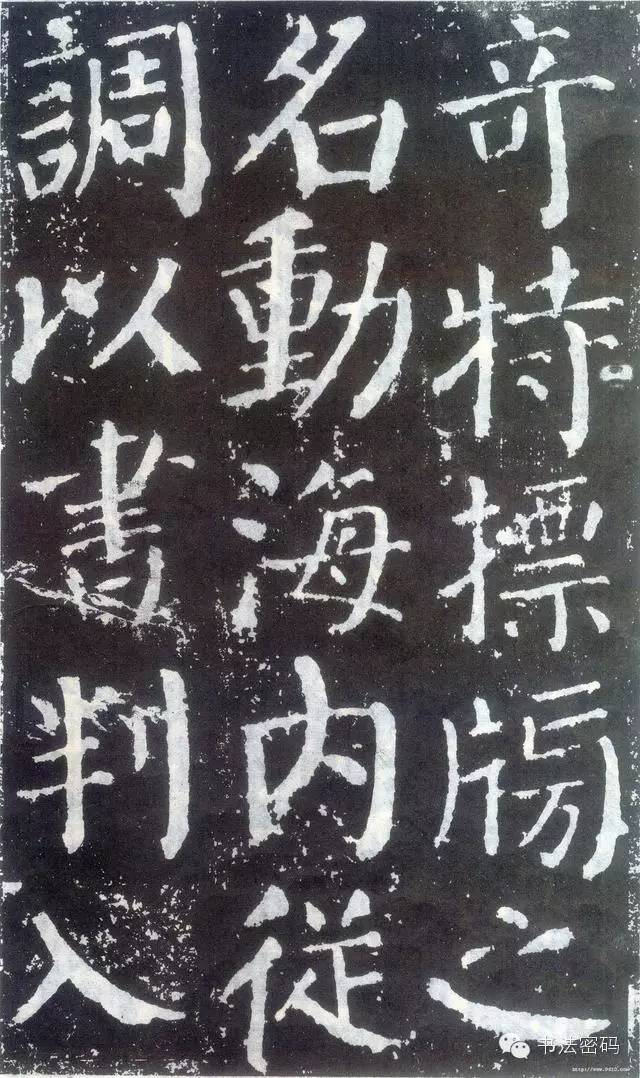 竒特摽牓之
名動海内従
調以書判入
书法密码
http://www.9610.com